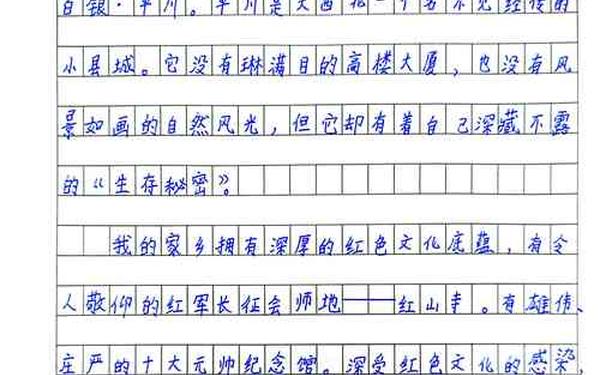 白银·平川。平川是大西北一个名不见经传的
小县城。它没有琳满目的高楼大厦，也没有风
景如画的自然风光，但它却有着自己深藏不露
的《生存秘密》。
我的家乡拥有深厚的红色文化底蕴，有令
人敬仰的红军长征会师地——红山寺。有雄伟、
庄严的十大元帅纪念馆。深受红色文化的感染，